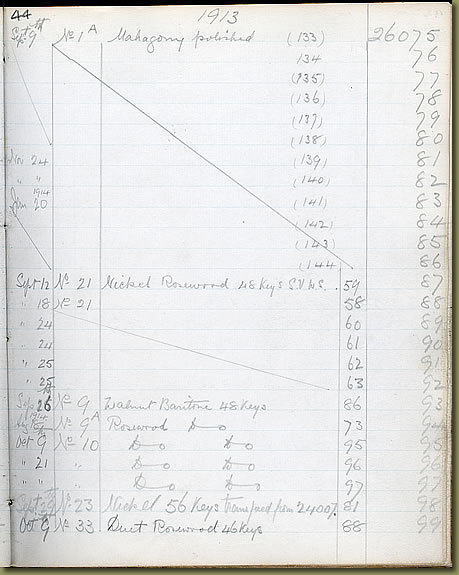 44 1913
Sept 9th No 1A Mahogany polished (133) 26075
134 76
(135) 77
(136) 78
(137) 79
(138) 80
Nov 24 (139) 81
" " (140) 82
Jan 1914 20 (141) 83
(142) 84
(143) 85
(144 86
Sept 12 No 21 Nickel Rosewood 48 Keys S.V. W.S. 59 87
" 18 No 21 58 88
" 24 60 89
" 24 61 90
" 25 62 91
" 25 63 92
Sep 26 No 9 Walnut Baritone 48 Keys 86 93
1914 No 9A Rosewood Do 73 94
Oct 9 No 10 Do Do 95 95
" 21 " Do Do 96 96
" " " Do Do 97 97
Sept 29th No 23 Nickel 56 Keys from 24007. 81 98
Oct 9 No 33 Duet Rosewood 46 Keys 88 99